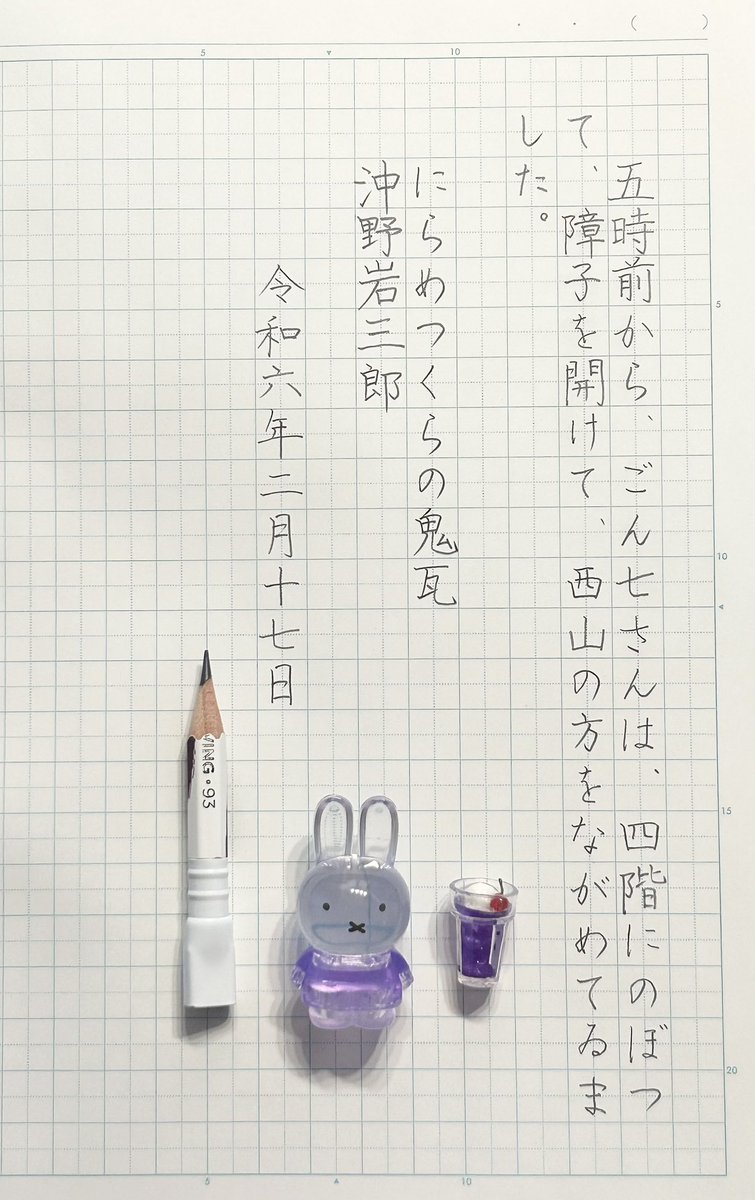 五時前から、ごん七さんは、四階にのぼつ
て、障子を開けて、西山の方をながめてゐま
した。
にらめつくらの鬼瓦
沖野岩三郎
令和六年二月十七日
WING・93
5
10
5
10
15
20
5
10